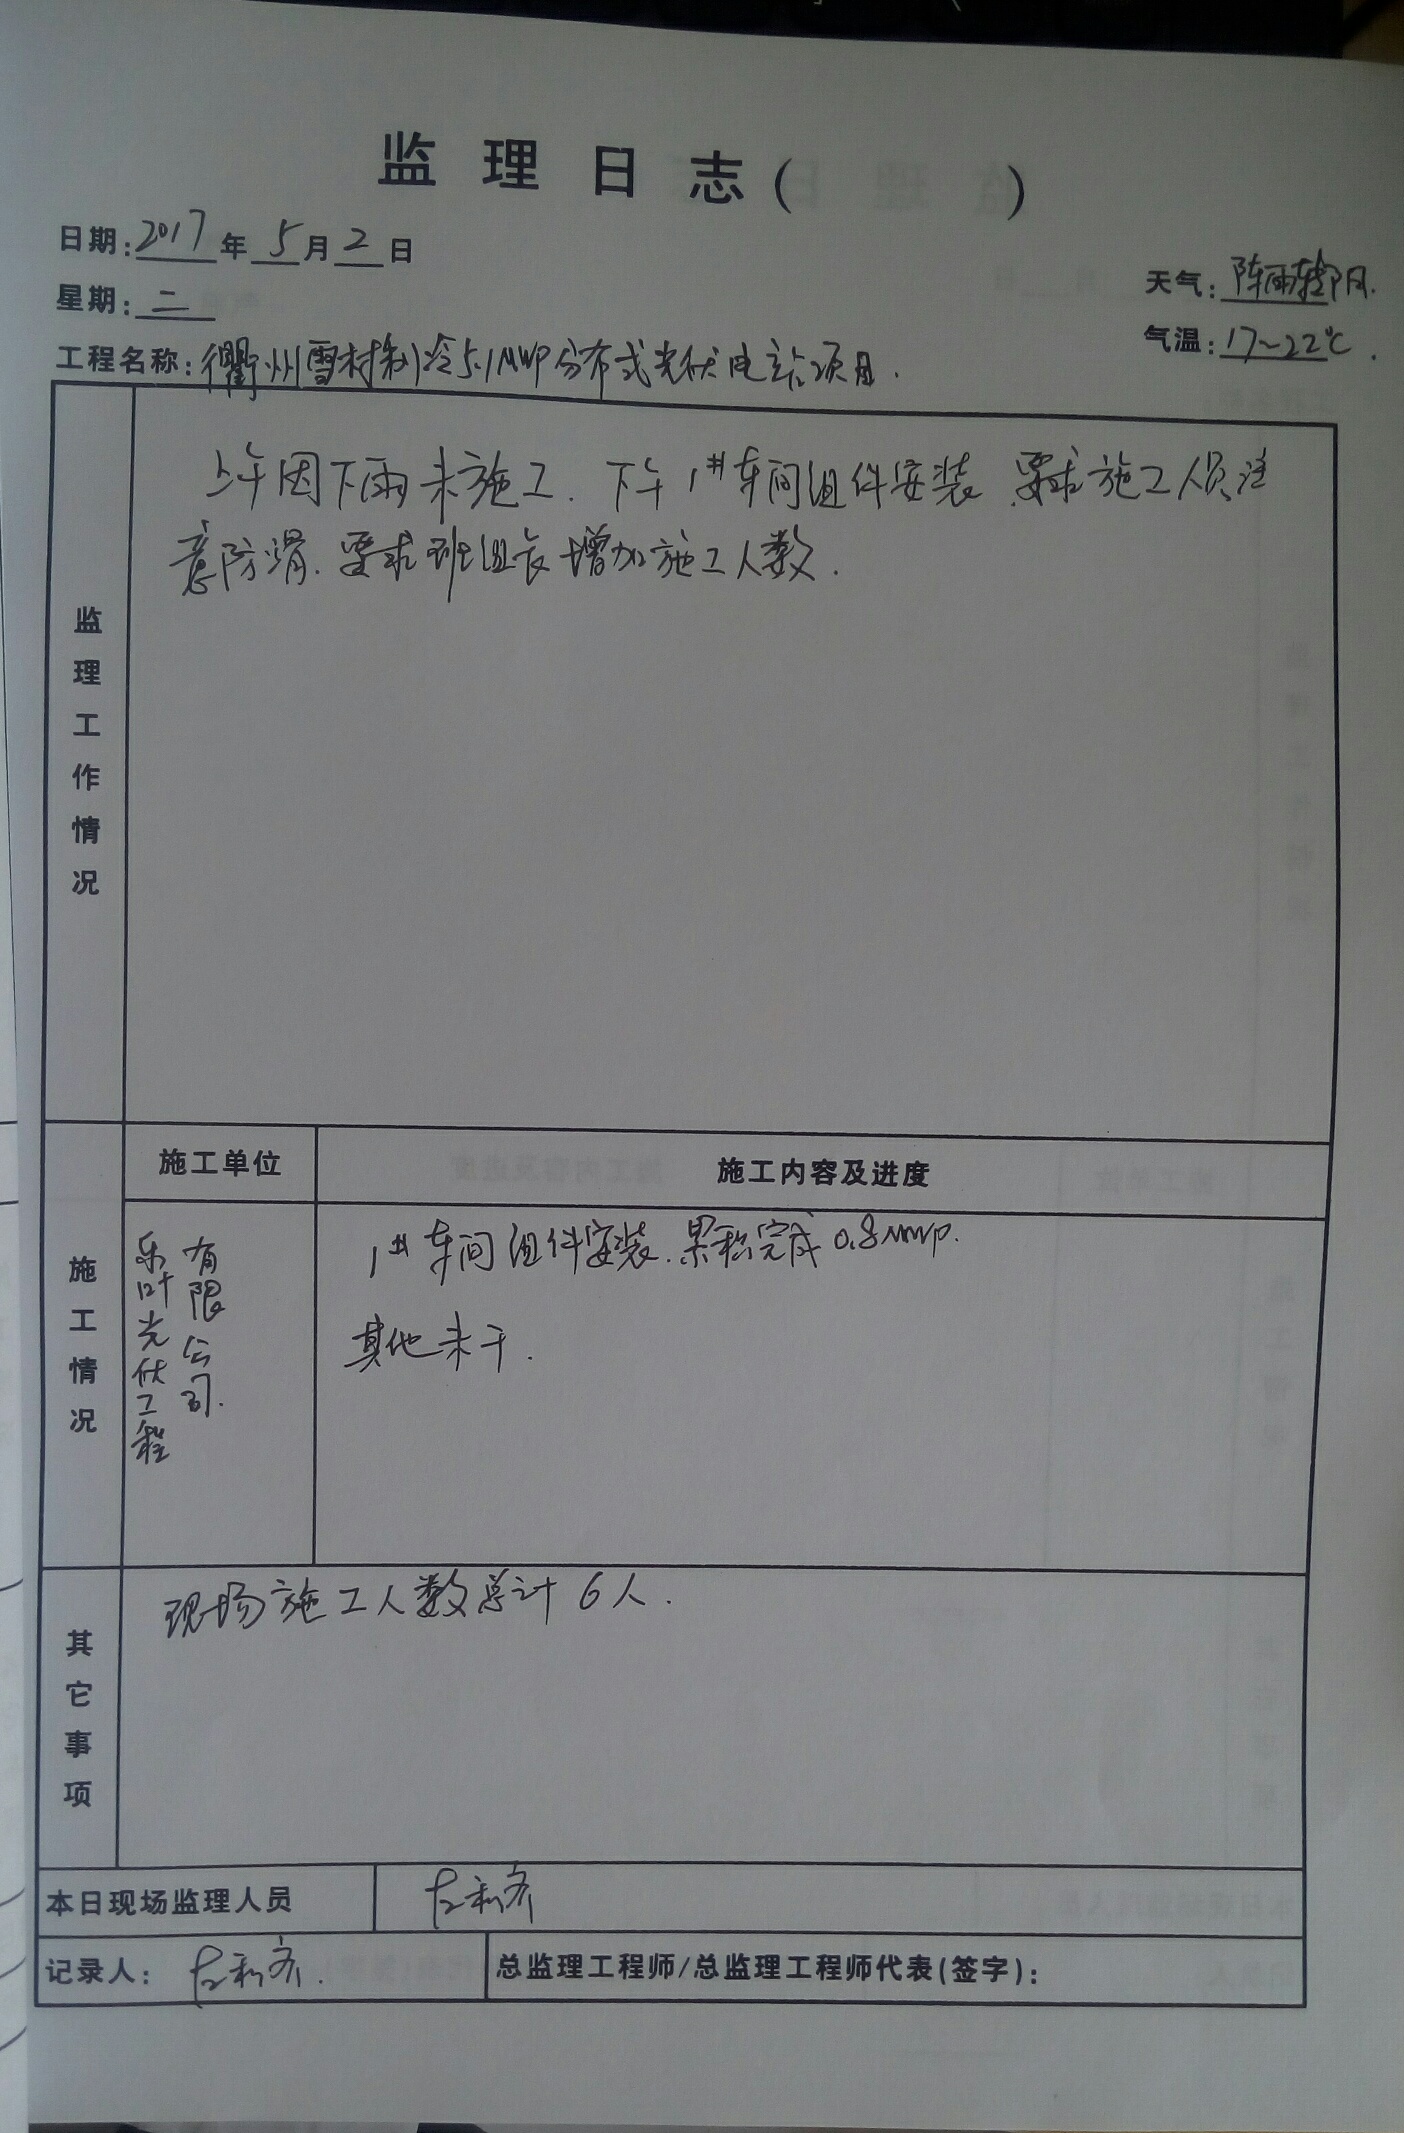 监理日志( )
日期:2017年5月2日
天气:阵雨转阴.
星期:二
气温:17~22℃.
工程名称:衢州雪村制冷5.1MWP分布式光伏电站项目.
监理工作情况
上午因下雨未施工.下午1#车间组件安装 要求施工人员注
意防滑.要求班组长增加施工人数.
施工情况
施工单位
施工内容及进度
乐叶光伏工程
有限公司.
1#车间组件安装.累积完成0.8MWP.
其他未干.
其它事项
现场施工人数总计6人.
本日现场监理人员
记录人:
总监理工程师/总监理工程师代表(签字):